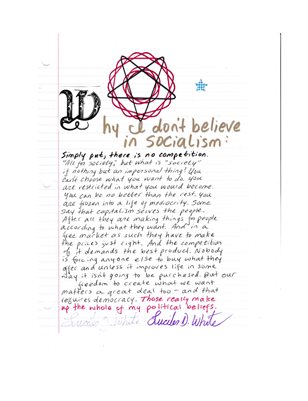 Why I don't believe
in Socialism:
Simply put, there is no competition.
"All for society," but what is "society"
if nothing but an impersonal thing? You
can't choose what you want to do. You
are restricted in what you would become.
You can be no better than the rest. You
are frozen into a life of mediocrity. Some
say that capitalism serves the people.
After all they are making things for people
according to what they want. And in a
free market as such they have to make
the prices just right. And the competition
of it demands the best product. Nobody
is forcing anyone else to buy what they
offer and unless it improves life in some
way it isn't going to be purchased. But our
freedom to create what we want
matters a great deal too - and that
requires democracy. Those really make
up the whole of my political beliefs.
White Lucelos D. White